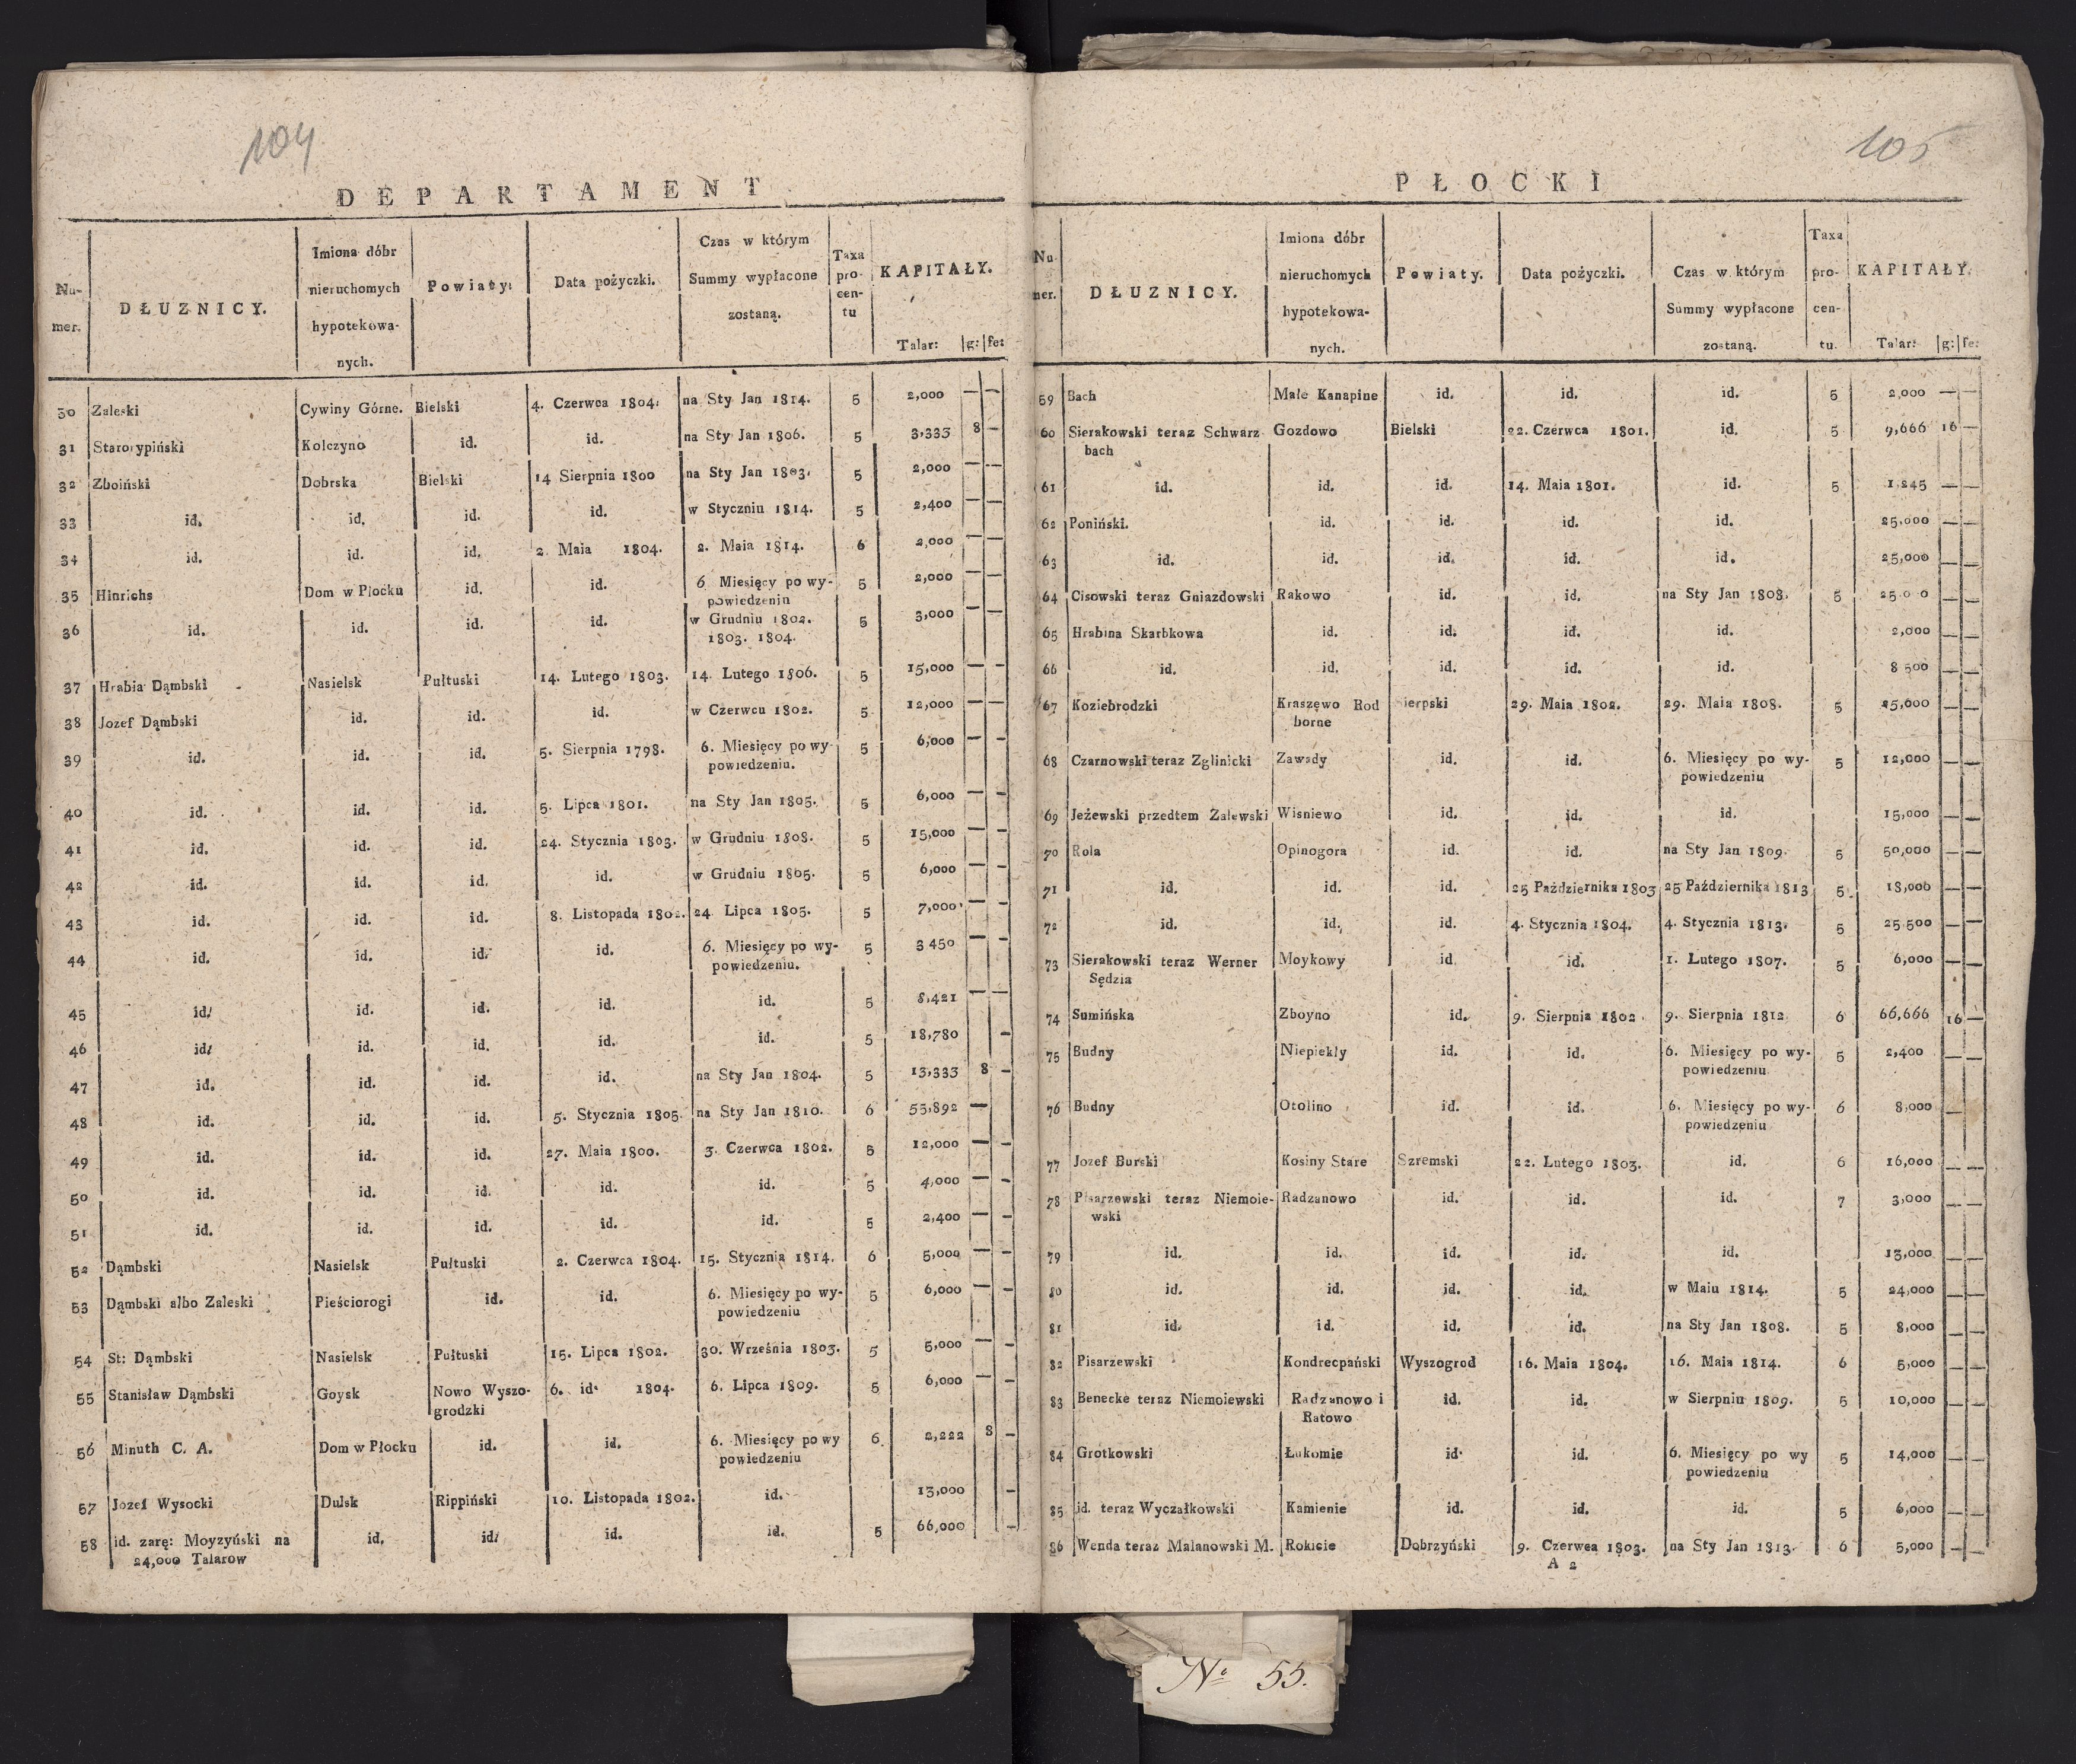 104
DEPARTAMENT
Nu-mer. DŁUZNICY. Imiona dóbr nieruchomych hypotekowa-nych. Powiaty: Data pożyczki. Czas w którym Summy wypłacone zostaną. Taxa pro-cen-tu KAPITAŁY. Talar: g: fe:
30 Zaleski Cywiny Górne. Bielski 4. Czerwca 1804. na Sty Jan 1814. 5 2,000 — —
31 Starorypiński Kolczyno id. id. na Sty Jan 1806. 5 3,333 8 —
32 Zboiński Dobrska Bielski 14 Sierpnia 1800 na Sty Jan 1803. 5 2,000 — —
33 id. id. id. id. w Styczniu 1814. 5 2,400 — —
34 id. id. id. 2. Maia 1804. 2. Maia 1814. 6 2,000 — —
35 Hinrichs Dom w Płocku id. id. 6 Miesięcy po wy-
powiedzeniu 5 2,000 — —
36 id. id. id. id. w Grudniu 1802.
1803. 1804. 5 3,000 — —
37 Hrabia Dąmbski Nasielsk Pułtuski 14. Lutego 1803. 14. Lutego 1806. 5 15,000 — —
38 Jozef Dąmbski id. id. id. w Czerwcu 1802. 5 12,000 — —
39 id. id. id. 5. Sierpnia 1798. 6. Miesięcy po wy-
powiedzeniu. 5 6,000 — —
40 id. id. id. 5. Lipca 1801. na Sty Jan 1805. 5 6,000 — —
41 id. id. id. 24. Stycznia 1803. w Grudniu 1808. 5 15,000 — —
42 id. id. id. id. w Grudniu 1805. 5 6,000 — —
43 id. id. id. 8. Listopada 1802. 24. Lipca 1805. 5 7,000 — —
44 id. id. id. id. 6. Miesięcy po wy-
powiedzeniu. 5 3 450 — —
45 id. id. id. id. id. 5 8,421 — —
46 id. id. id. id. id. 5 18,780 —
47 id. id. id. id. na Sty Jan 1804. 5 13,333 8 —
48 id. id. id. 5. Stycznia 1805. na Sty Jan 1810. 6 55,892 —
49 id. id. id. 27. Maia 1800. 3. Czerwca 1802. 5 12,000 — —
50 id. id. id. id. id. 5 4,000 — —
51 id. id. id. id. id. 5 2,400 — —
52 Dąmbski Nasielsk Pułtuski 2. Czerwca 1804. 15. Stycznia 1814. 6 5,000 — —
53 Dąmbski albo Zaleski Pieściorogi id. id. 6. Miesięcy po wy-
powiedzeniu 5 6,000 — —
54 St: Dąmbski Nasielsk Pułtuski 15. Lipca 1802. 30. Września 1803. 5 5,000 — —
55 Stanisław Dąmbski Goysk Nowo Wyszo-
grodzki 6. id. 1804. 6. Lipca 1809. 5 6,000 — —
56 Minuth C. A. Dom w Płocku id. id. 6. Miesięcy po wy
powiedzeniu 6 2,222 8 —
57 Jozef Wysocki Dulsk Rippiński 10. Listopada 1802. id. 13,000 —
58 id. zarę: Moyzyński na
24,000 Talarow id. id. id. id. 5 66,000 —
105
PŁOCKI
Nu mer. DŁUZNICY. Imiona dóbr nieruchomych hypotekowa-nych. Powiaty. Data pożyczki. Czas w którym Summy wypłacone zostaną. Taxa pro-cen-tu. KAPITAŁY. Talar: g: fe:
59 Bach Małe Kanapine id. id. id. 5 2,000 — —
60 Sierakowski teraz Schwarz
bach Gozdowo Bielski 22. Czerwca 1801. id. 5 9,666 16 —
61 id. id. id. 14. Maia 1801. id. 5 1,245 — —
62 Poniński. id. id. id. id. 25,000 — —
63 id. id. id. id. id. 25,000 — —
64 Cisowski teraz Gniazdowski Rakowo id. id. na Sty Jan 1808. 5 — —
65 Hrabina Skarbkowa id. id. id. id. 2,000 — —
66 id. id. id. id. id. 8 500 — —
67 Koziebrodzki Kraszęwo Rod
borne Sierpski 29. Maia 1802. 29. Maia 1808. 5 25,000 — —
68 Czarnowski teraz Zglinicki Zawady id. id. 6. Miesięcy po wy-
powiedzeniu 5 12,000 — —
69 Jeżewski przedtem Zalewski Wisniewo id. id. id. 15,000 — —
70 Rola Opinogora id. id. na Sty Jan 1809. 5 50,000 — —
71 id. id. id. 25 Października 1803 25 Października 1813 5 18,006 — —
72 id. id. id. 4. Stycznia 1804. 4. Stycznia 1813. 5 25 500 — —
73 Sierakowski teraz Werner
Sędzia Moykowy id id. 1. Lutego 1807. 5 6,000 — —
74 Sumińska Zboyno id. 9. Sierpnia 1802. 9. Sierpnia 1812 6 66,666 16 —
75 Budny Niepiekły id. id. 6. Miesięcy po wy-
powiedzeniu 5 2,400 — —
76 Budny Otolino id. id. 6. Miesięcy po wy-
powiedzeniu 6 8,000 — —
77 Jozef Burski Kosiny Stare Szremski 22. Lutego 1803. id. 6 16,000 — —
78 Pisarzewski teraz Niemoie-
wski Radzanowo id. id. id. 7 3,000 — —
79 id. id. id. id. id. 13,000 — —
80 id. id. id. id. w Maiu 1814. 5 24,000 — —
81 id. id. id. id. na Sty Jan 1808. 5 8,000 — —
82 Pisarzewski Kondrecpański Wyszogrod 16. Maia 1804. 16. Maia 1814. 6 5,000 — —
83 Benecke teraz Niemoiewski Radzanowo i
Ratowo id. id. w Sierpniu 1809. 5 10,000 — —
84 Grotkowski Łukomie id. id. 6. Miesięcy po wy
powiedzeniu 5 14,000 — —
85 id. teraz Wyczałkowski Kamienie id. id. id. 5 6,000 — —
86 Wenda teraz Malanowski M. Rokicie Dobrzyński 9. Czerwca 1803. na Sty Jan 1813. 6 5,000 — —
A 2
No 55.